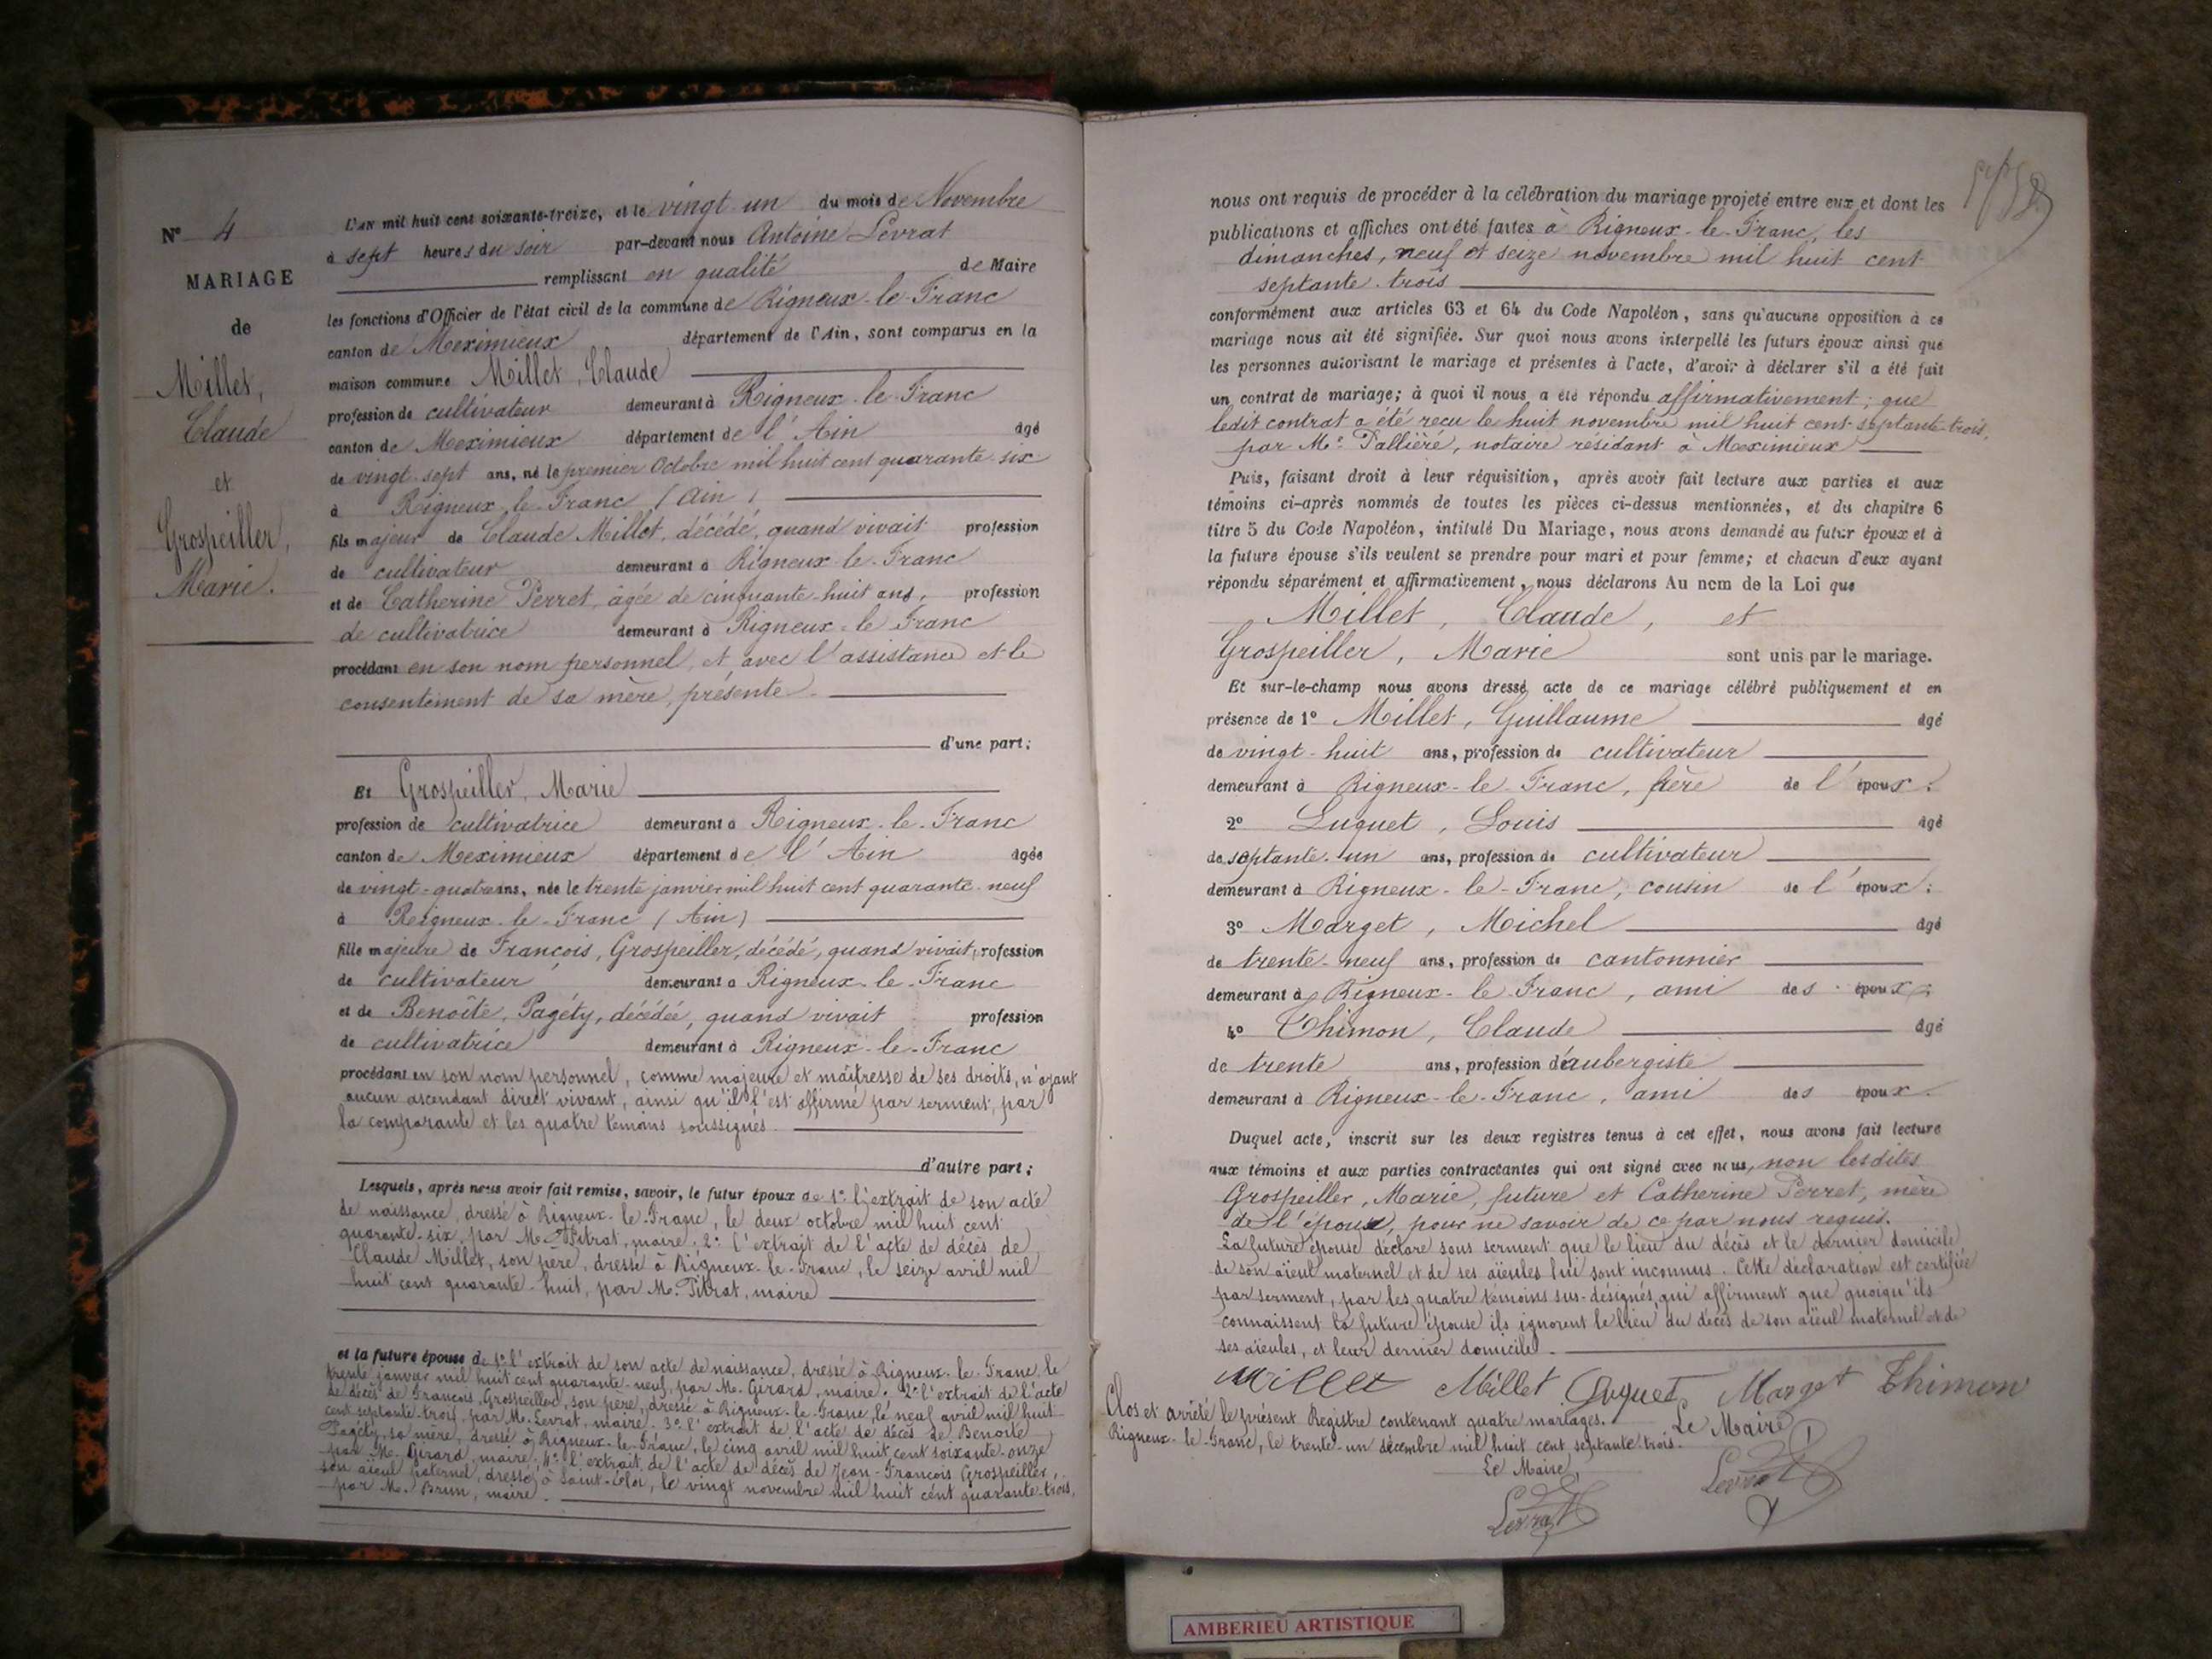 N° 4
MARIAGE
de
Millet,
Claude
et
Grospeiller,
Marie.
L'AN mil huit cent soixante-treize, et le vingt un du mois de Novembre
à sept heures du soir par-devant nous Antoine Levrat
remplissant en qualité de Maire
les fonctions d'Officier de l'état civil de la commune de Rigneux-le-Franc
canton de Meximieux département de l'Ain, sont comparus en la
maison commune Millet, Claude
profession de cultivateur demeurant à Rigneux-le-Franc
canton de Meximieux département de l'Ain âgé
de vingt-sept ans, né le premier Octobre mil huit cent quarante-six
à Rigneux-le-Franc (Ain)
fils majeur de Claude Millet, décédé, quand vivait profession
de cultivateur demeurant à Rigneux-le-Franc
et de Catherine Perret, âgée de cinquante-huit ans, profession
de cultivatrice demeurant à Rigneux-le-Franc
procédant en son nom personnel, et avec l'assistance et le
consentement de sa mère, présente
d'une part;
Et Grospeiller, Marie
profession de cultivatrice demeurant à Rigneux-le-Franc
canton de Meximieux département de l'Ain âgée
de vingt-quatre ans, née le trente janvier mil huit cent quarante-neuf
à Rigneux-le-Franc (Ain)
fille majeure de François, Grospeiller, décédé, quand vivait profession
de cultivateur demeurant à Rigneux-le-Franc
et de Benoîte, Pagéty, décédée, quand vivait profession
de cultivatrice demeurant à Rigneux-le-Franc
procédant en son nom personnel, comme majeure et maîtresse de ses droits, n'ayant
aucun ascendant direct vivant, ainsi qu'il l'est affirmé par serment, par
la comparante et les quatre témoins soussignés.
d'autre part;
Lesquels, après nous avoir fait remise, savoir, le futur époux de 1° l'extrait de son acte
de naissance, dressé à Rigneux-le-Franc, le deux octobre mil huit cent
quarante-six, par M. Pitrat, maire. 2° l'extrait de l'acte de décès de
Claude Millet, son père, dressé à Rigneux-le-Franc, le seize avril mil
huit cent quarante-huit, par M. Pitrat, maire
et la future épouse de 1° l'extrait de son acte de naissance, dressé à Rigneux-le-Franc, le
trente janvier mil huit cent quarante-neuf, par M. Girard, maire. 2° l'extrait de l'acte
de décès de François, Grospeiller, son père, dressé à Rigneux-le-Franc, le neuf avril mil huit
cent septante-trois, par M. Levrat, maire. 3° l'extrait de l'acte de décès de Benoîte
Pagéty, sa mère, dressé à Rigneux-le-Franc, le cinq avril mil huit cent soixante-onze
par M. Girard, maire. 4° l'extrait de l'acte de décès de Jean-François Grospeiller,
son aïeul paternel, dressé à Saint-Eloi, le vingt novembre mil huit cent quarante-trois,
par M. Brun, maire.
nous ont requis de procéder à la célébration du mariage projeté entre eux et dont les
publications et affiches ont été faites à Rigneux-le-Franc, les
dimanches, neuf et seize novembre mil huit cent
septante-trois
conformément aux articles 63 et 64 du Code Napoléon, sans qu'aucune opposition à ce
mariage nous ait été signifiée. Sur quoi nous avons interpellé les futurs époux ainsi que
les personnes autorisant le mariage et présentes à l'acte, d'avoir à déclarer s'il a été fait
un contrat de mariage; à quoi il nous a été répondu affirmativement; que
ledit contrat a été reçu le huit novembre mil huit cent septante-trois,
par Me Pallière, notaire résidant à Meximieux
Puis, faisant droit à leur réquisition, après avoir fait lecture aux parties et aux
témoins ci-après nommés de toutes les pièces ci-dessus mentionnées, et du chapitre 6
titre 5 du Code Napoléon, intitulé Du Mariage, nous avons demandé au futur époux et à
la future épouse s'ils veulent se prendre pour mari et pour femme; et chacun d'eux ayant
répondu séparément et affirmativement, nous déclarons Au nom de la Loi que
Millet, Claude, et
Grospeiller, Marie sont unis par le mariage.
Et sur-le-champ nous avons dressé acte de ce mariage célébré publiquement et en
présence de 1° Millet, Guillaume âgé
de vingt-huit ans, profession de cultivateur
demeurant à Rigneux-le-Franc, frère de l'époux;
2° Luquet, Louis âgé
de septante-un ans, profession de cultivateur
demeurant à Rigneux-le-Franc, cousin de l'époux;
3° Marget, Michel âgé
de trente-neuf ans, profession de cantonnier
demeurant à Rigneux-le-Franc, ami des époux;
4° Thimon, Claude âgé
de trente ans, profession d'aubergiste
demeurant à Rigneux-le-Franc, ami des époux.
Duquel acte, inscrit sur les deux registres tenus à cet effet, nous avons fait lecture
aux témoins et aux parties contractantes qui ont signé avec nous, non lesdites
Grospeiller, Marie, future et Catherine Perret, mère
de l'époux, pour ne savoir de ce par nous requis.
La future épouse déclare sous serment que le lieu du décès et le dernier domicile
de son aïeul maternel et de ses aïeules lui sont inconnus. Cette déclaration est certifiée
par serment, par les quatre témoins sus-désignés, qui affirment que quoiqu'ils
connaissent la future épouse ils ignorent le lieu du décès de son aïeul maternel et de
ses aïeules, et leur dernier domicile.
Millet Millet Luquet Marget Thimon
Clos et arrêté le présent Registre contenant quatre mariages. Le Maire
Rigneux-le-Franc, le trente-un décembre mil huit cent septante-trois.
Le Maire,
Levrat
Levrat
AMBERIEU ARTISTIQUE